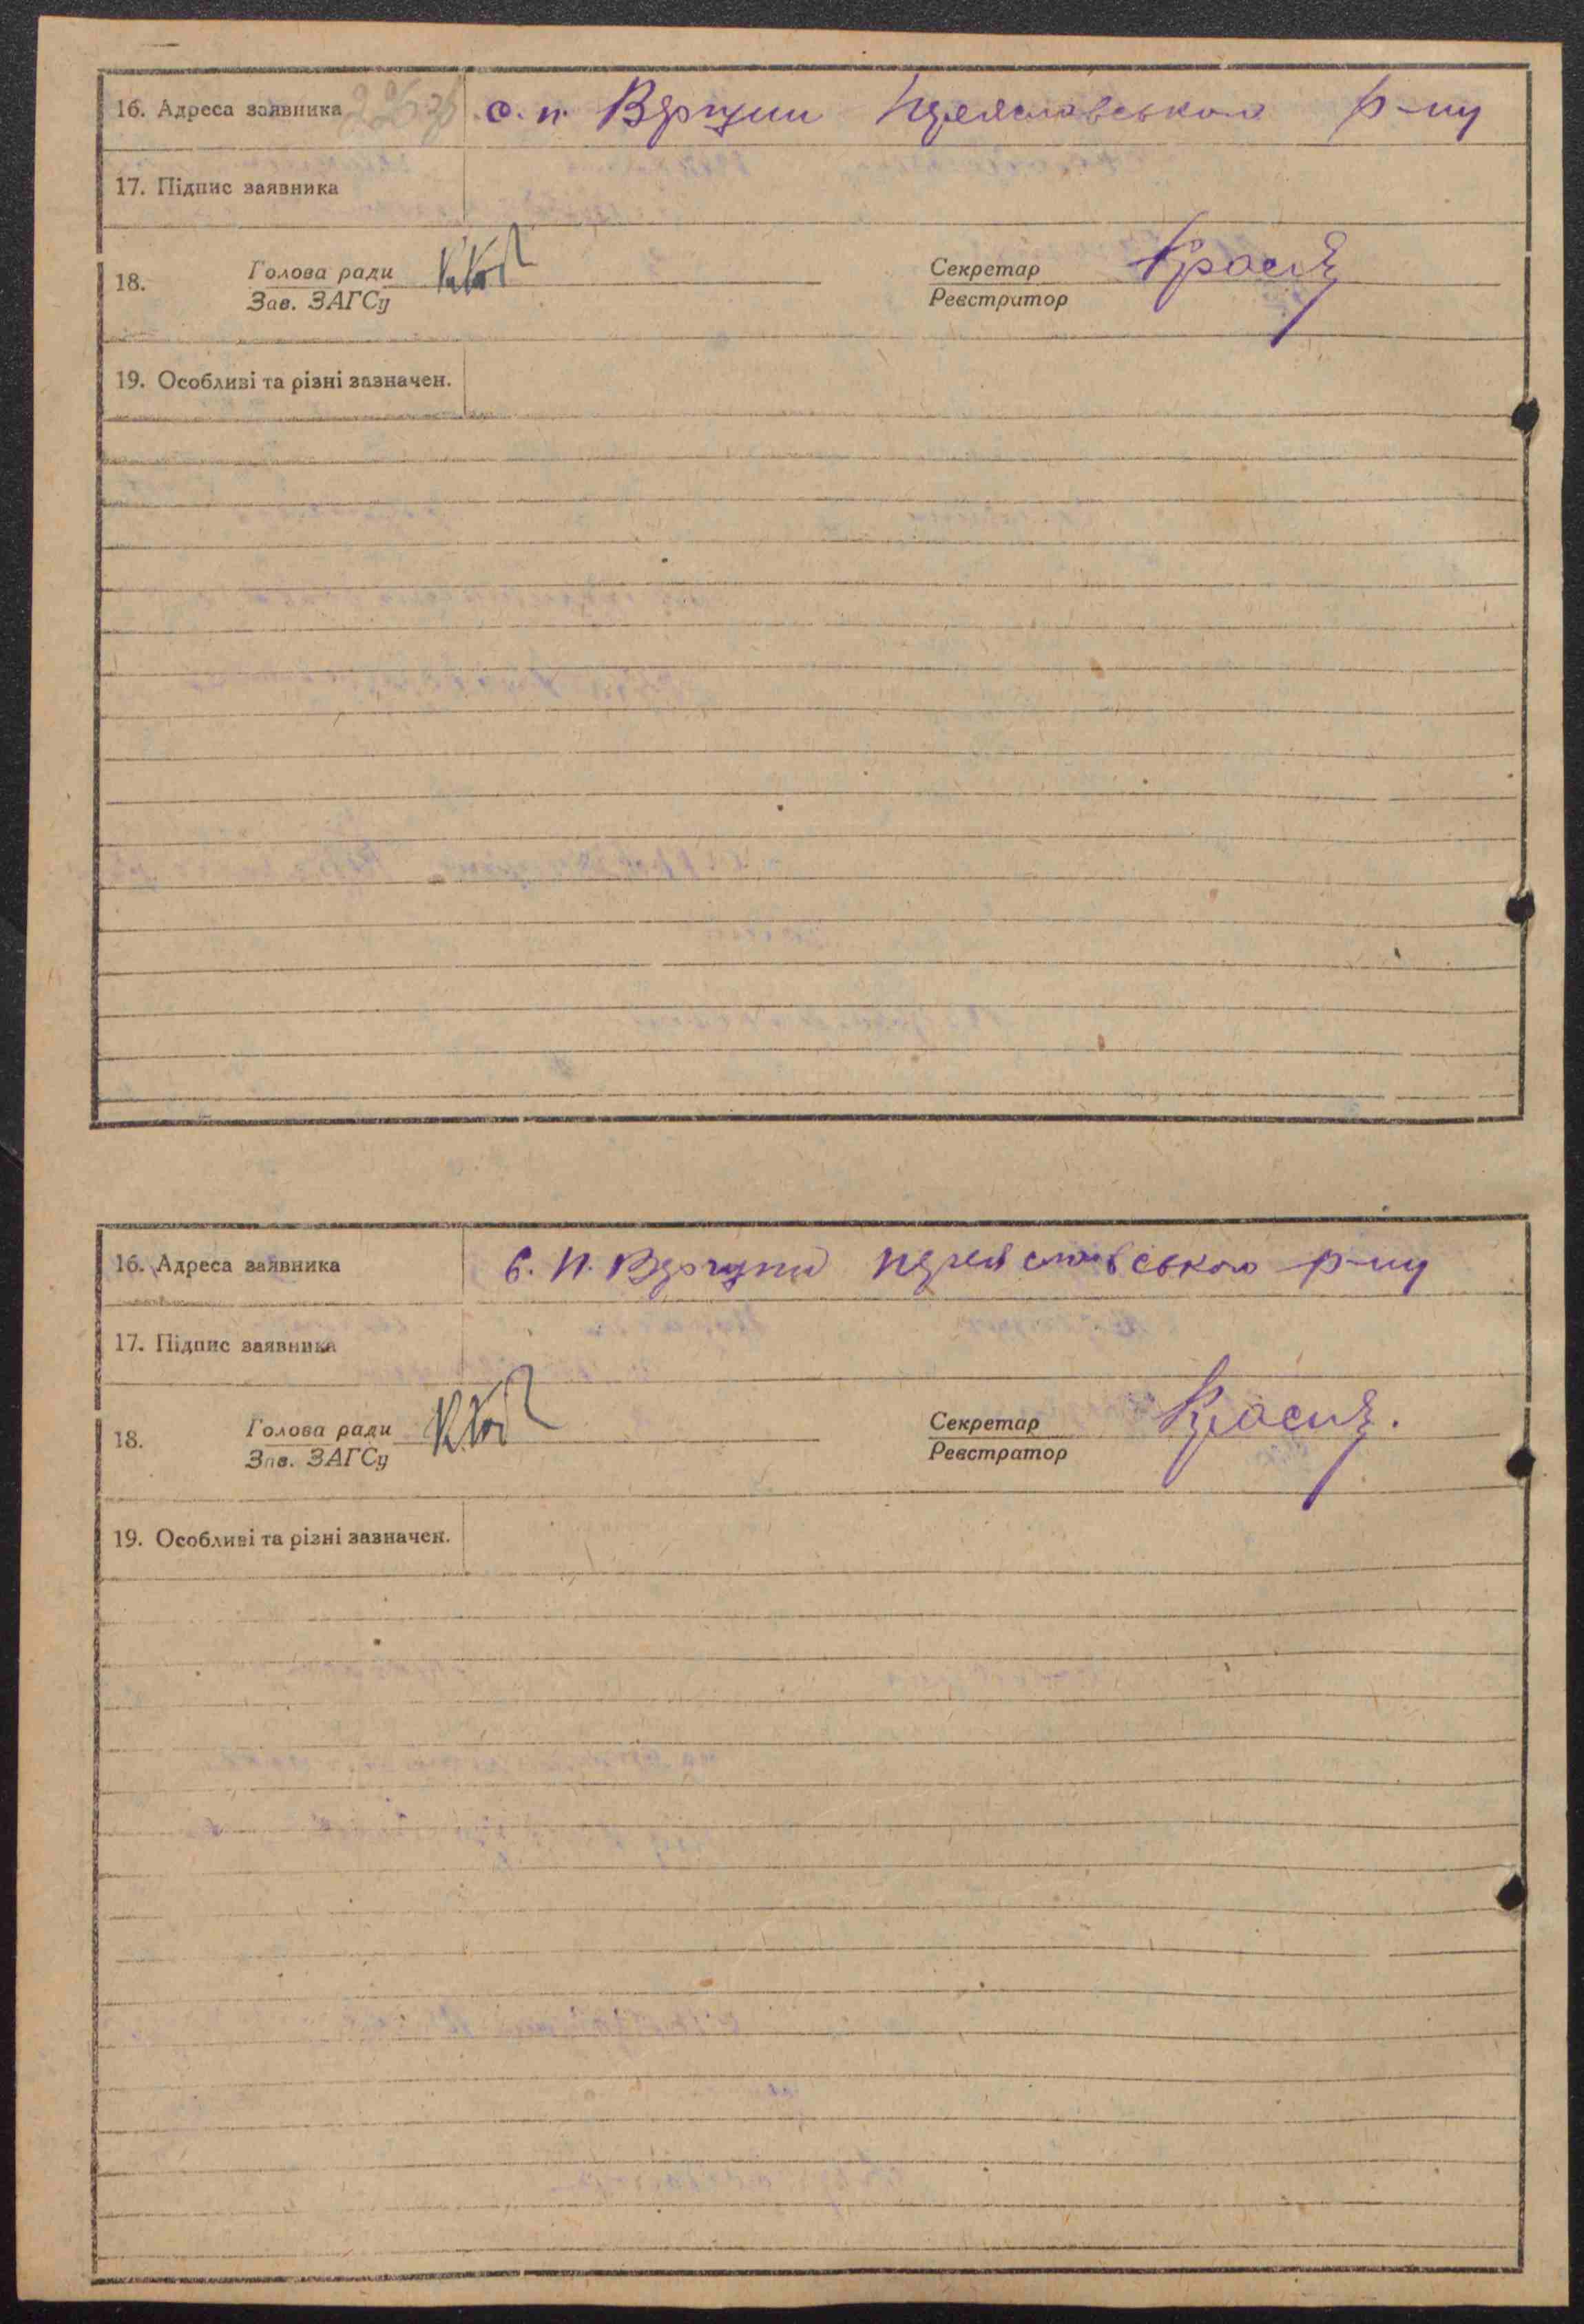 16. Адреса заявника с. п. Вергуни Переяславського р-ну
17. Підпис заявника
18. Голова ради Секретар
Зав. ЗАГСу Реєстратор
19. Особливі та різні зазначен.
16. Адреса заявника с. п. Вергуни Переяславського р-ну
17. Підпис заявника
18. Голова ради Секретар
Зав. ЗАГСу Реєстратор
19. Особливі та різні зазначен.